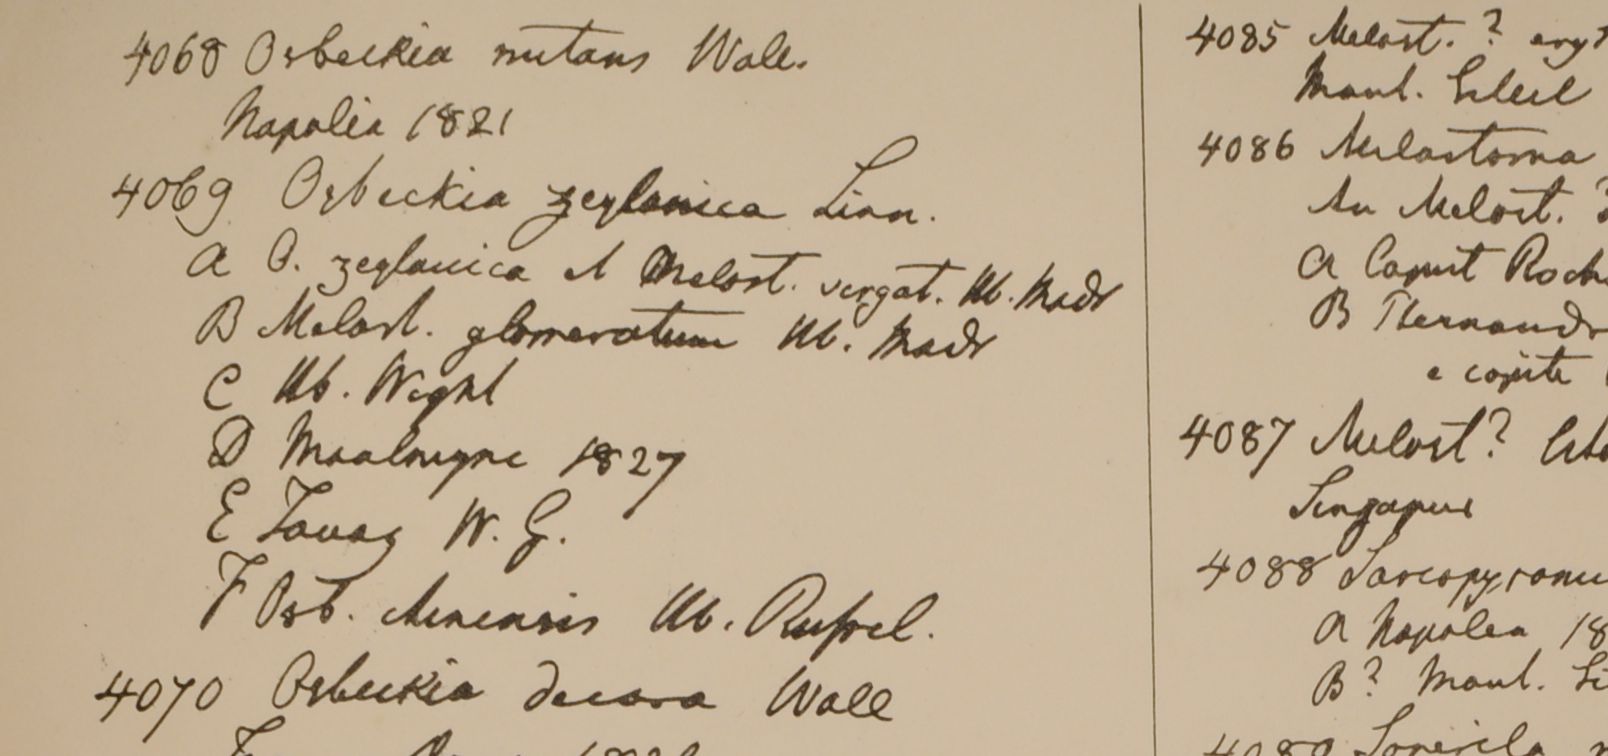 4068 Osbeckia nutans Wall.
Napalia 1821
4069 Osbeckia zeylanica Linn.
A O. zeylanica et Melast. virgat. Hb. Madr
B Melast. glomeratum Hb. Madr
C Hb. Wight
D Moalmyne 1827
E Tavoy W. G.
F Osb. chinensis Hb. Russel.
4070 Osbeckia decora Wall
4085 Melast. ?
Mont. Silet
4086 Melastoma
An Melast. ?
A Caput
B
e capite
4087 Melast?
Singapur
4088
A Napalea 18
B? Mont.
4089